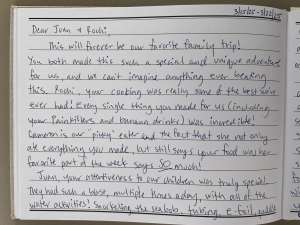 3/15/25 - 3/22/25
Dear Juan & Rochi,
This will forever be our favorite family trip!
You both made this such a special and unique adventure
for us, and we can't imagine anything ever beating
this. Rochi, your cooking was really some of the best we've
ever had! Every single thing you made for us (including
your Painkillers and banana drinks) was incredible!
Cameron is our "picky" eater and the fact that she not only
ate everything you made, but still says your food was her
favorite part of the week says SO much!
Juan, your attentiveness to our children was truly special.
They had such a blast, multiple times a day, with all of the
water activities! Snorkeling, the seabob, tubing, E-foil, paddle